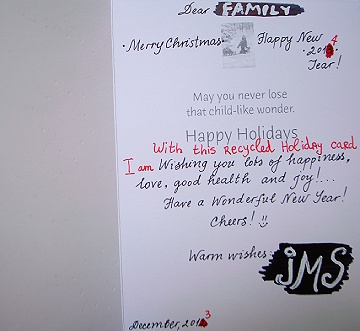 Dear FAMILY
·Merry Christmas· Happy New
·2014
Year!
May you never lose
that child-like wonder.
Happy Holidays
With this recycled Holiday card
I am Wishing you lots of happiness,
love, good health and joy!...
Have a Wonderful New Year!
Cheers!
Warm wishes
JMS
December, 2013